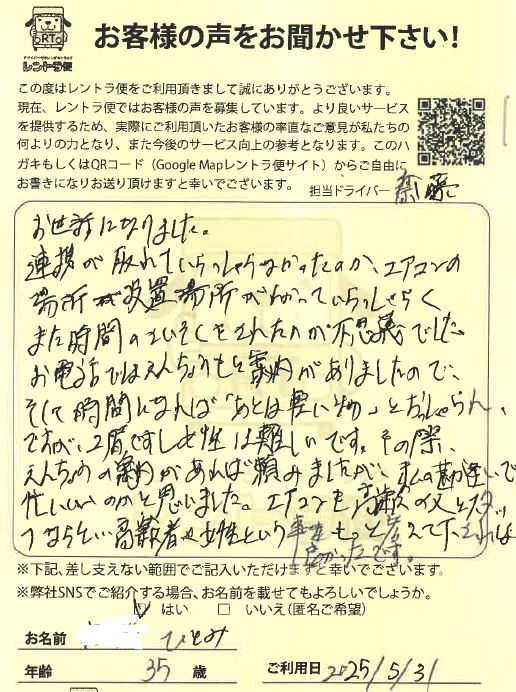 RTG
ドライバー付きレンタルトラック
レントラ便
お客様の声をお聞かせ下さい！
この度はレントラ便をご利用頂きまして誠にありがとうございます。
現在、レントラ便ではお客様の声を募集しています。より良いサービス
を提供するため、実際にご利用頂いたお客様の率直なご意見が私たちの
何よりの力となり、また今後のサービス向上の参考となります。このハ
ガキもしくはQRコード（Google Mapレントラ便サイト）からご自由に
お書きになりお送り頂けますと幸いでございます。
担当ドライバー 斎藤
お世話になりました。
連携が取れていらっしゃらなかったのか、エアコンの
場所が設置場所がわかっていらっしゃらく
また時間のさいそくをされたのが不思議でした
お電話ではえんちょうもと案内がありましたので、
そして時間になれば「あとは軽い物」とおっしゃられ、
ですが、2階ですし女性は難しいです。その際、
えんちょうの案内があれば頼みましたが、私の勘違いで
忙しいのかと思いました。エアコンも高齢の父と
高齢者や女性という事をもっと考えて下されば
良かったです。
※下記、差し支えない範囲でご記入いただけますと幸いでございます。
※弊社SNSでご紹介する場合、お名前を載せてもよろしいでしょうか。
☑ はい □ いいえ（匿名ご希望）
お名前 ひとみ
年齢 35 歳 ご利用日 2025/5/31